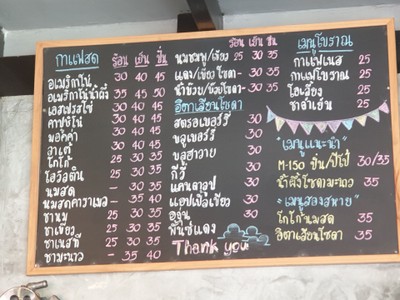 กาแฟสด ร้อน เย็น ปั่น
อเมริกาโน่ 30 40 45
อเมริกาโน่น้ำผึ้ง 35 45 50
เอสเปรสโซ่ 30 40 45
คาปูชิโน่ 30 40 45
มอคค่า 30 40 45
ลาเต้ 30 40 45
โกโก้ 25 30 35
โอวัลติน 25 30 35
นมสด - 30 35
นมสดคาราเมล - 35 40
ชานม 25 30 35
ชาเขียว 25 30 35
ชาเนสที 25 30 35
ชามะนาว - 35 40
ร้อน เย็น ปั่น
นมชมพู/เขียว 25 30 35
แดง/เขียว โซดา - 30 35
น้ำบ๊วย/บ๊วยโซดา - 30 35
อิตาเลียนโซดา
สตรอเบอร์รี่ 30
บลูเบอร์รี่ 30
บลูฮาวาย 30
กีวี่ 30
แคนตาลูป 30
แอปเปิ้ลเขียว 30
องุ่น 30
พั้นช์แดง
Thank you
เมนูโบราณ
กาแฟเนส 25
กาแฟโบราณ 25
โอเลี้ยง 25
ชาดำเย็น 25
"เมนูแนะนำ"
M-150 ปั่น/ปีโป้ 30/35
น้ำผึ้งโซดามะนาว 35
"เมนูสองสหาย"
โกโก้นมสด 35
อิตาเลียนโซดา 35